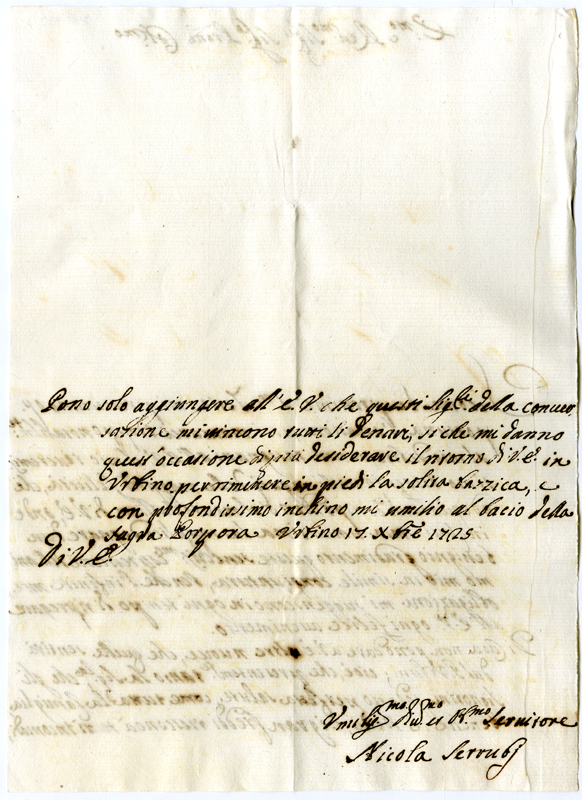 Posso solo aggiungere all'E.V. che questi Sig.ri della conver
satione mi vincono tutti li denari, si che mi danno
quest'occasione di più desiderare il ritorno di V.E. in
Urbino, per rimettere in piedi la solita bazzica, e
con profondissimo inchino mi umilio al bacio della
sagra Porpora Urbino 17 Xbre 1725
Di V.E.
Umiliss.mo Dev.mo et Obl.mo Servitore
Nicola